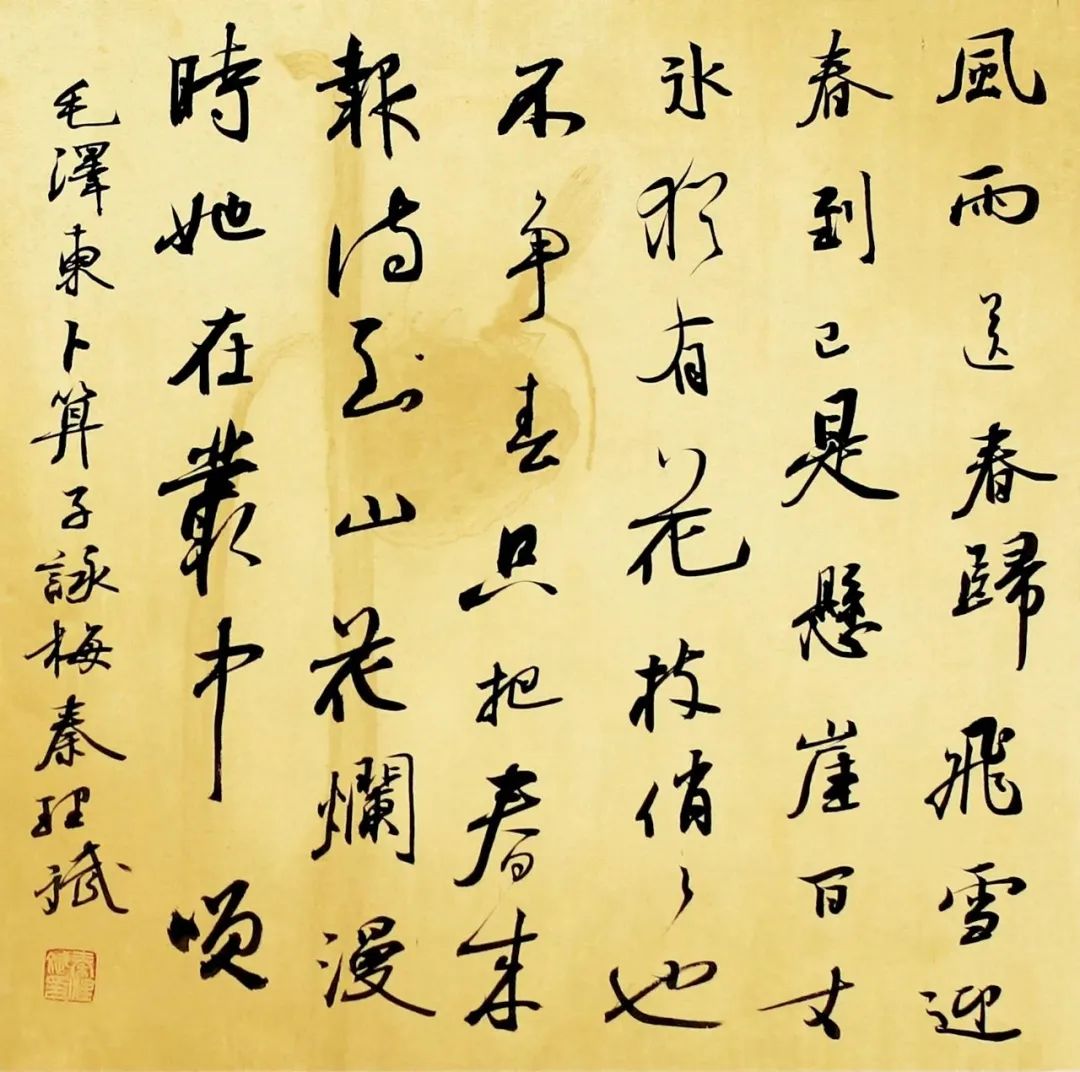 風雨送春歸飛雪迎
春到已是懸崖百丈
氷猶有花枝俏々也
不争春只把春来
報待到山花爛漫
時她在叢中咲
毛澤東卜算子詠梅秦